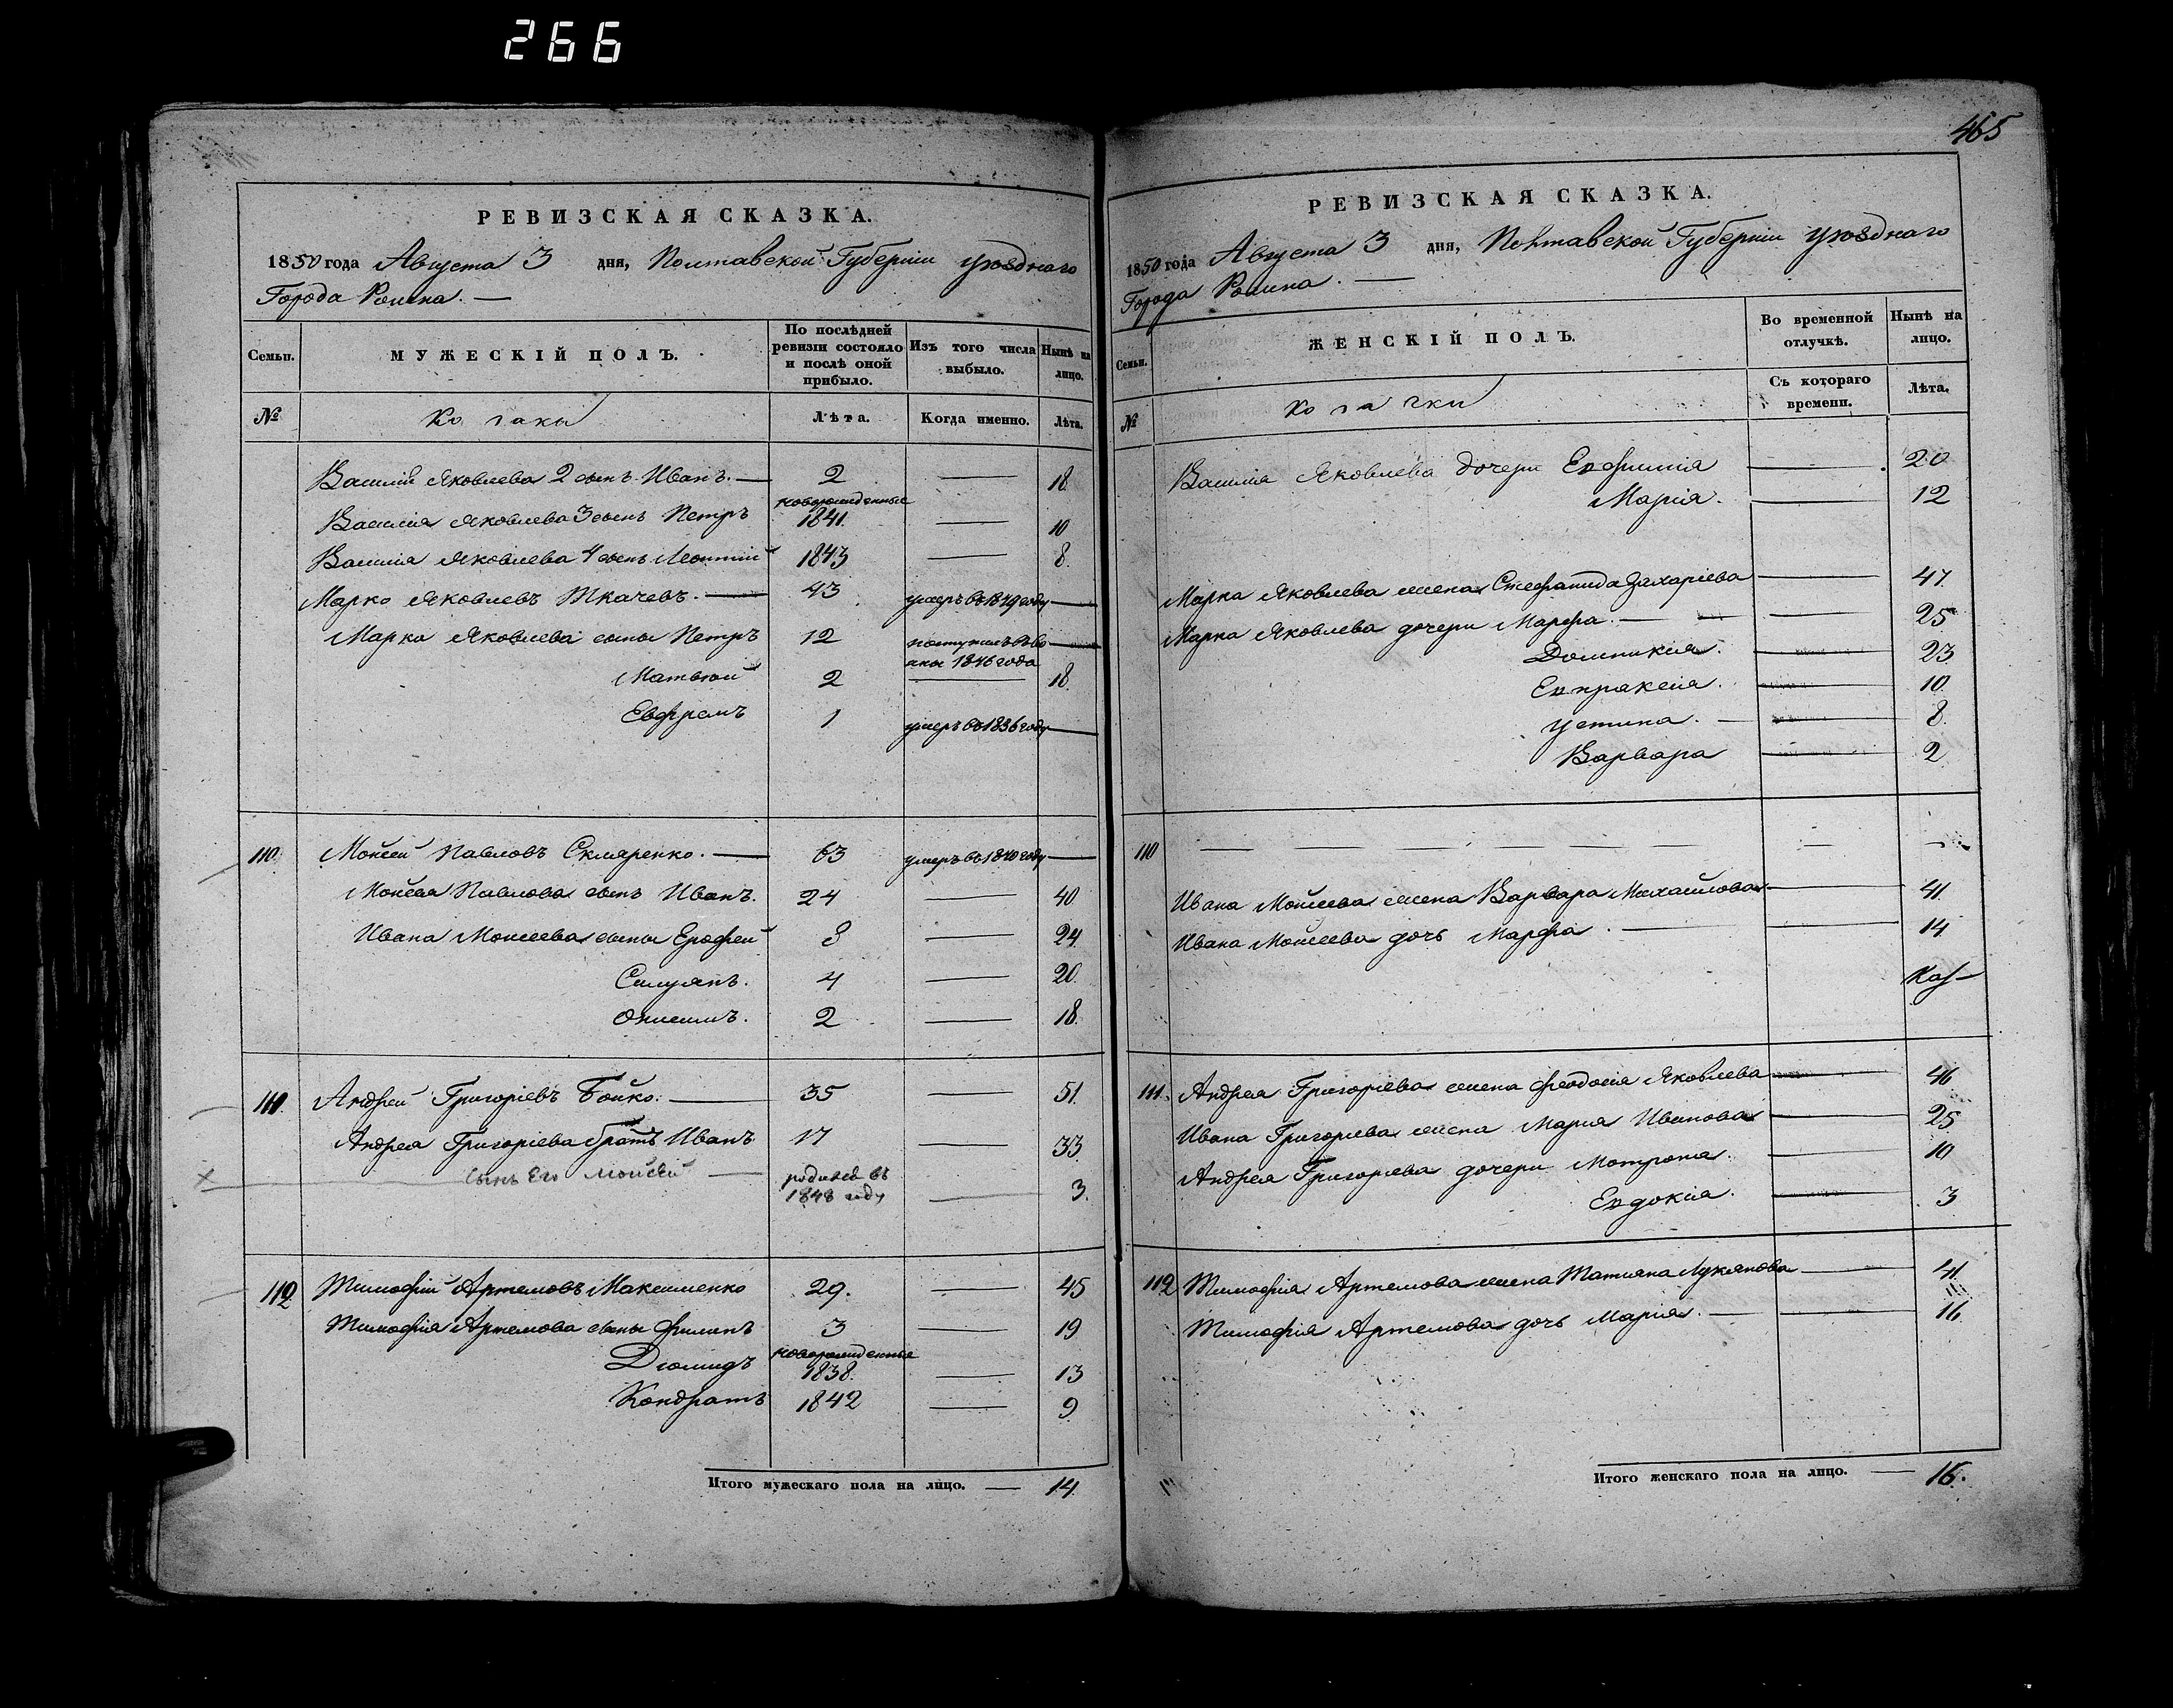 266
РЕВИЗСКАЯ СКАЗКА.
1850 года Августа 3 дня, Полтавской Губерніи уѣзднаго
Города Ромна. —
Семьи. МУЖЕСКІЙ ПОЛЪ. По послѣдней ревизіи состояло и послѣ оной прибыло. Изъ того числа выбыло. Нынѣ на лицо.
№ Козаки Лѣта. Когда именно. Лѣта.
Василія Яковлева 2 сынъ Иванъ. — 2 — 18
новорожденные
Василія Яковлева 3 сынъ Петръ 1841. — 10
Василія Яковлева 4 сынъ Леонтій 1843 — 8.
Марко Яковлевъ Ткачевъ. — 43 умеръ въ 1849 году —
Марка Яковлева сыны Петръ 12 —
1846 года
Матвѣй 2 — 18.
Евфремъ 1 умеръ въ 1836 году —
110. Моисей Павловъ Скляренко. — 63 умеръ въ 1840 году —
Моисея Павлова сынъ Иванъ. 24 — 40
Ивана Моисеева сыны Ерофей 8 — 24
Силуянъ. 4 — 20.
Онисимъ. 2 — 18.
111. Андрей Григоріевъ Бойко. — 35 — 51.
Андрея Григоріева братъ Иванъ 17 — 33
х сынъ Его Моисей — родился въ
1848 году — 3.
112 Тимофій Артемовъ Максименко 29. — 45
Тимофія Артемова сыны Филипъ 3 — 19
новорожденные
Дiомидъ 1838. — 13
Кондратъ 1842 — 9
Итого мужескаго пола на лицо. — 14.
465
РЕВИЗСКАЯ СКАЗКА.
1850 года Августа 3 дня, Полтавской Губерніи уѣзднаго
Города Ромна. —
Семьи. ЖЕНСКІЙ ПОЛЪ. Во временной отлучкѣ. Нынѣ на лицо.
№ Козачки Съ котораго времени. Лѣта.
Василія Яковлева дочери Евфимія — 20
Марія. — 12
Марка Яковлева жена Стефанида Захаріева — 47.
Марка Яковлева дочери Марфа. — — 25
Домникія. — 23.
Евпраксія. — 10.
Устина. — — 8.
Варвара — 2
110 — — — — — — — — —
Ивана Моисеева жена Варвара Михайлова — 41.
Ивана Моисеева дочь Марфа. — — 14.
111. Андрея Григоріева жена Феодосія Яковлева — 46
Ивана Григоріева жена Марія Иванова — 25
Андрея Григоріева дочери Мотрона. 10
Евдокія. — 3
112 Тимофія Артемова жена Татіана Лукянова — 41.
Тимофія Артемова дочь Марія. — — 16.
Итого женскаго пола на лицо. — 16.